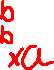 b
b
xa